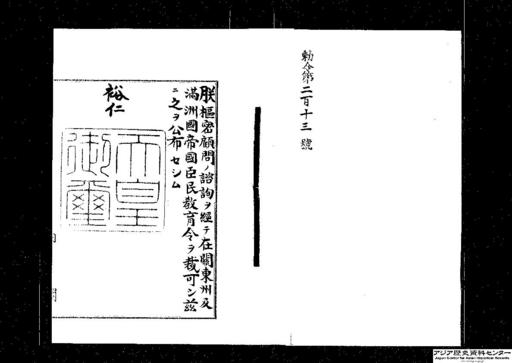 勅令第二百十三號
朕樞密顧問ノ諮詢ヲ經テ在關東州及
滿洲國帝國臣民敎育令ヲ裁可シ茲
ニ之ヲ公布セシム
裕仁
天皇
御璽
アジア歴史資料センター
Japan Center for Asian Historical Records